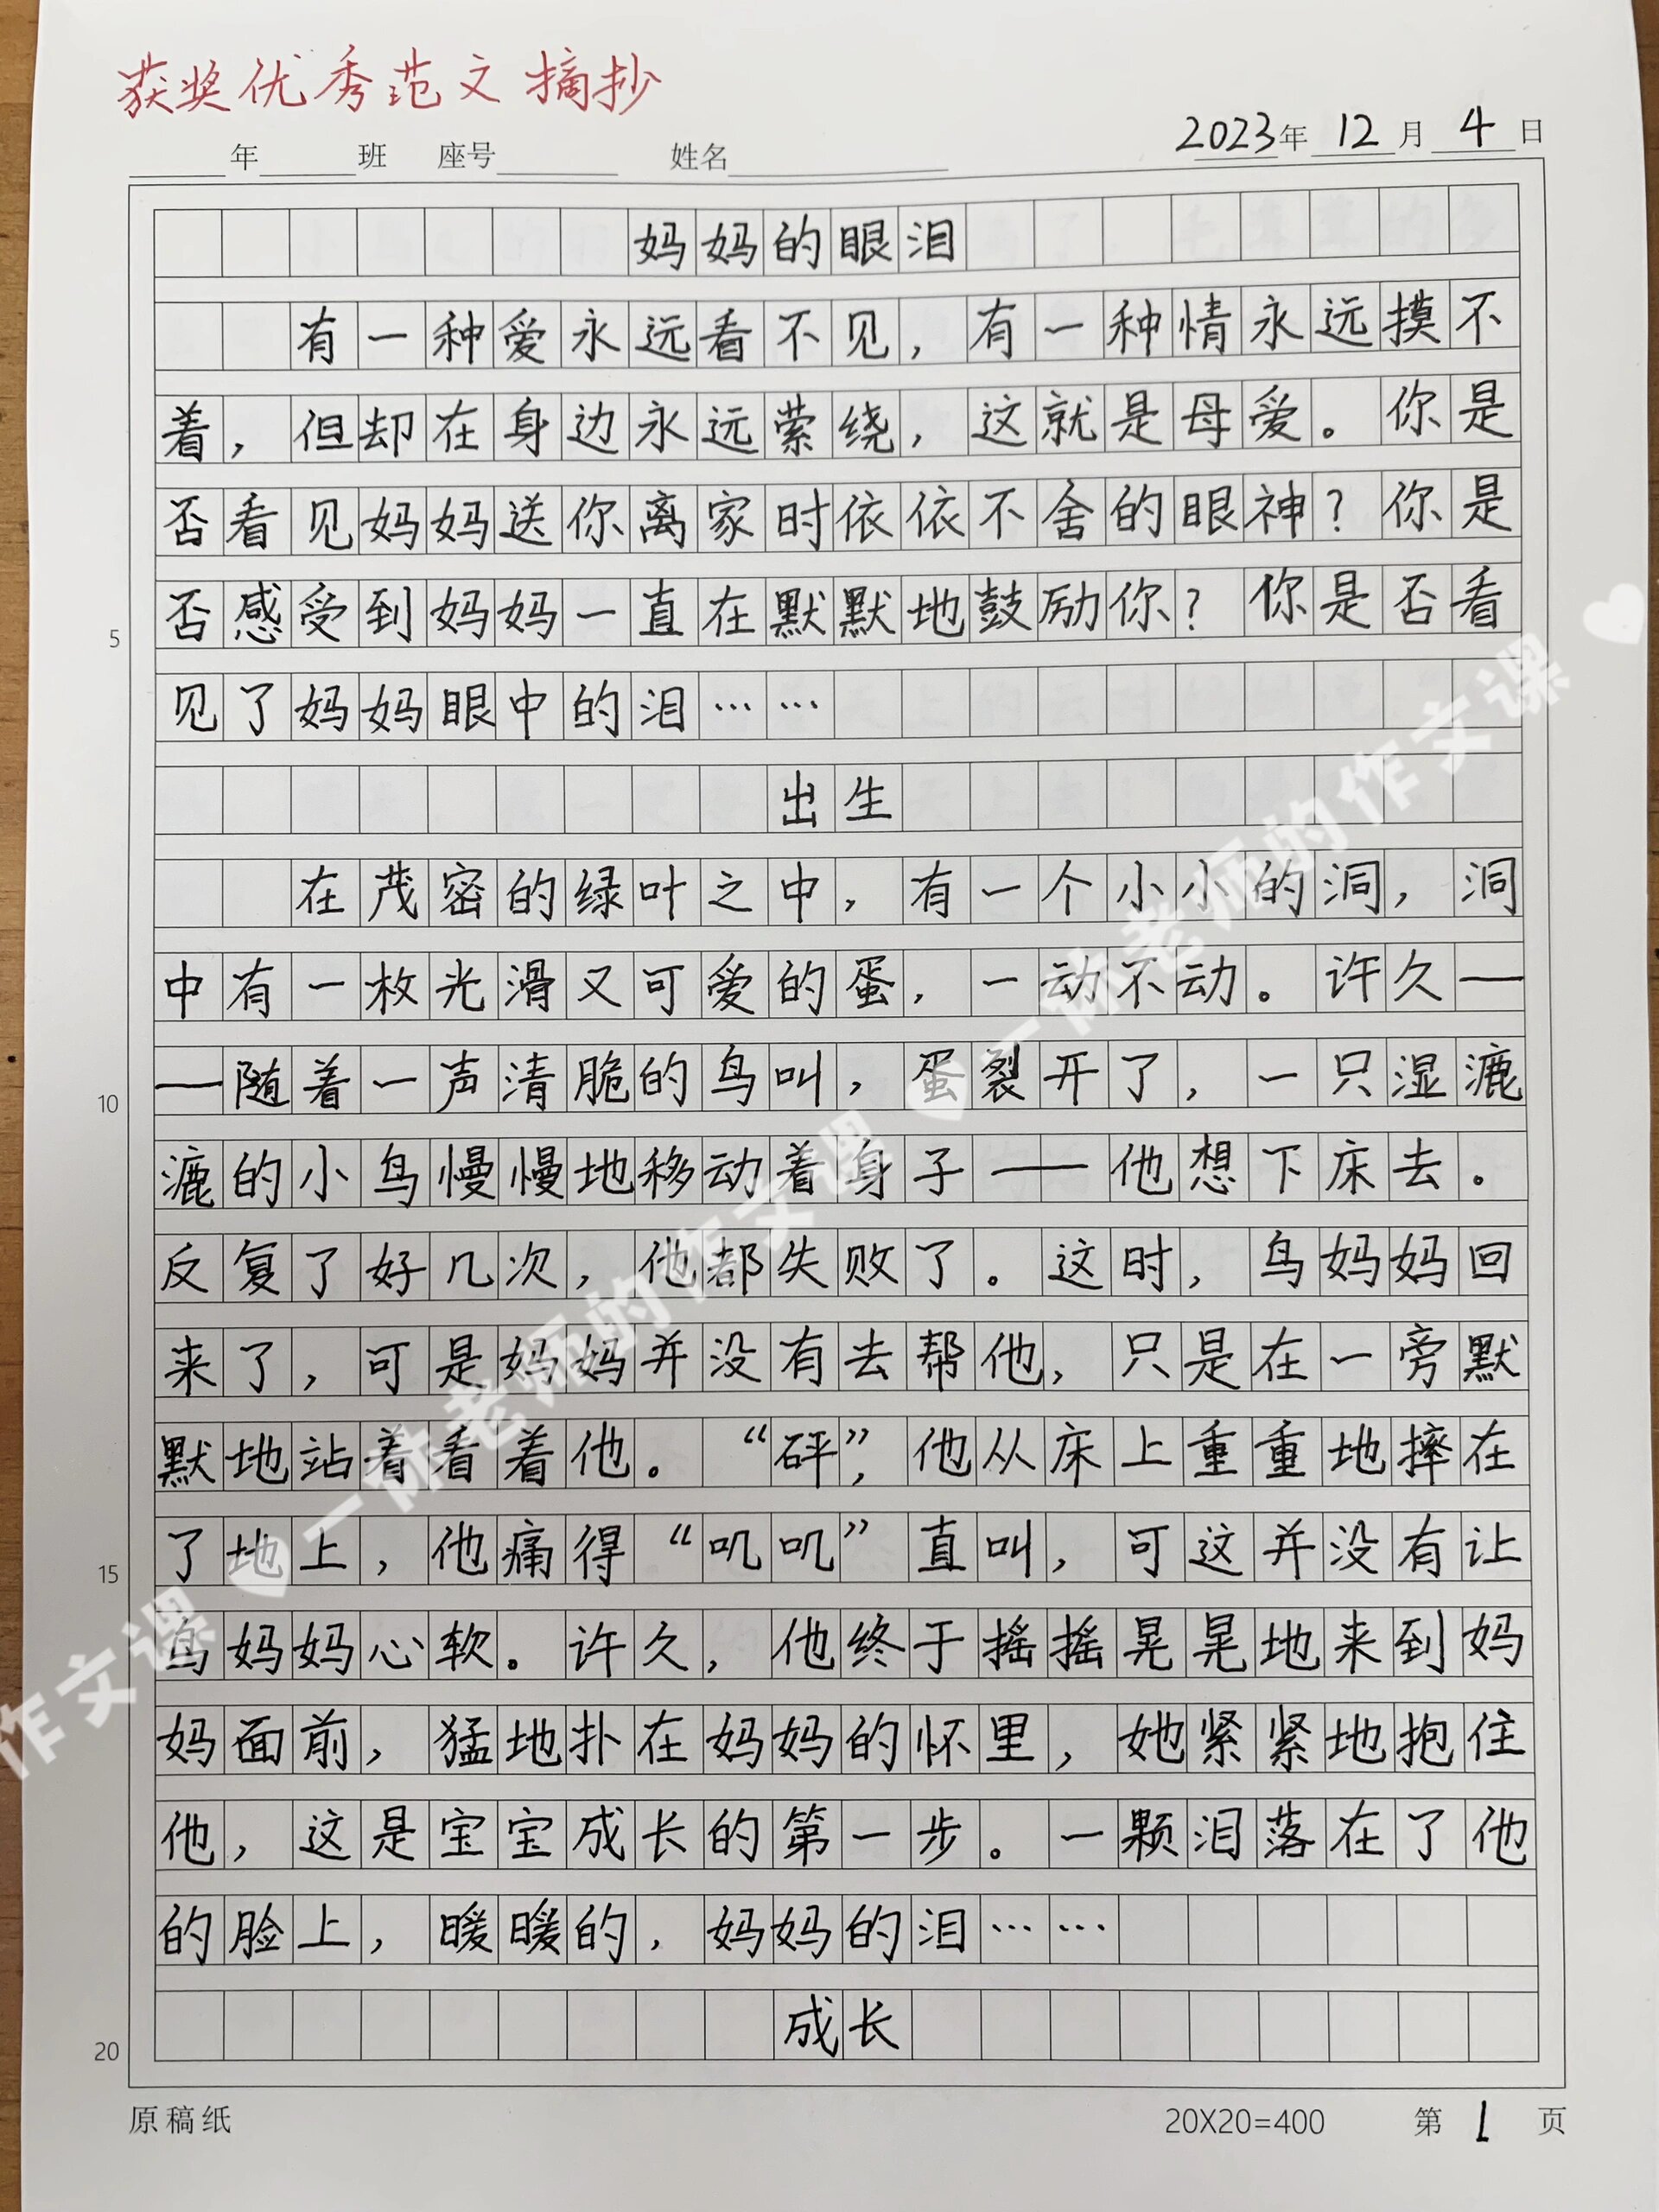 获奖优秀范文摘抄
2023年12月4日
年 班 座号 姓名
妈妈的眼泪
有一种爱永远看不见，有一种情永远摸不
着，但却在身边永远萦绕，这就是母爱。你是
否看见妈妈送你离家时依依不舍的眼神？你是
否感受到妈妈一直在默默地鼓励你？你是否看
5
见了妈妈眼中的泪……
出生
在茂密的绿叶之中，有一个小小的洞，洞
中有一枚光滑又可爱的蛋，一动不动。许久—
—随着一声清脆的鸟叫，蛋裂开了，一只湿漉
10
漉的小鸟慢慢地移动着身子——他想下床去。
反复了好几次，他都失败了。这时，鸟妈妈回
来了，可是妈妈并没有去帮他，只是在一旁默
默地站着看着他。“砰”，他从床上重重地摔在
了地上，他痛得“叽叽”直叫，可这并没有让
15
鸟妈妈心软。许久，他终于摇摇晃晃地来到妈
妈面前，猛地扑在妈妈的怀里，她紧紧地抱住
他，这是宝宝成长的第一步。一颗泪落在了他
的脸上，暖暖的，妈妈的泪……
成长
20
原稿纸 20X20=400 第1页
一你老师的作文课
一你老师的作文课
作文课